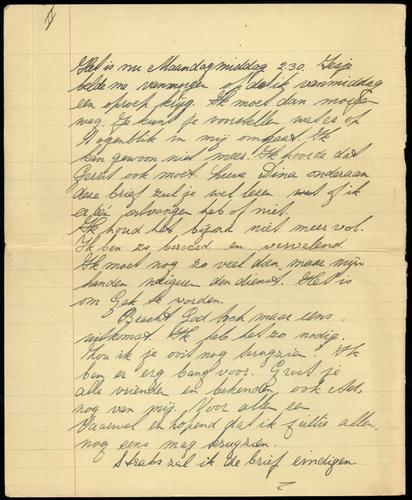 Het is nu Maandagmiddag 2.30. Zusje
belde me vanmorgen op dat ik vanmiddag
een oproep krijg. Ik moet dan morgen
weg. Je kunt je voorstellen wat er op
't ogenblik in mij omgaat. Ik
kan gewoon niet meer. Ik hoorde dat
Gerrit ook moet. Lieve Dina onderaan
deze brief zul je wel lezen wat of ik
er één ontvangen heb of niet.
Ik houd het bijna niet meer vol.
Ik ben zo beroerd en vervelend.
Ik moet nog zo veel doen, maar mijn
handen weigeren den dienst. Het is
om Gek te worden.
Bracht God toch maar eens
uitkomst. Ik heb het zo nodig.
Zou ik je ooit nog terugzien? Ik
ben er erg bang voor. Groet je
alle vrienden en bekenden, ook
nog van mij. Voor allen een
Vaarwel en hopend dat ik jullie allen
nog eens mag terugzien.
Straks zal ik de brief eindigen